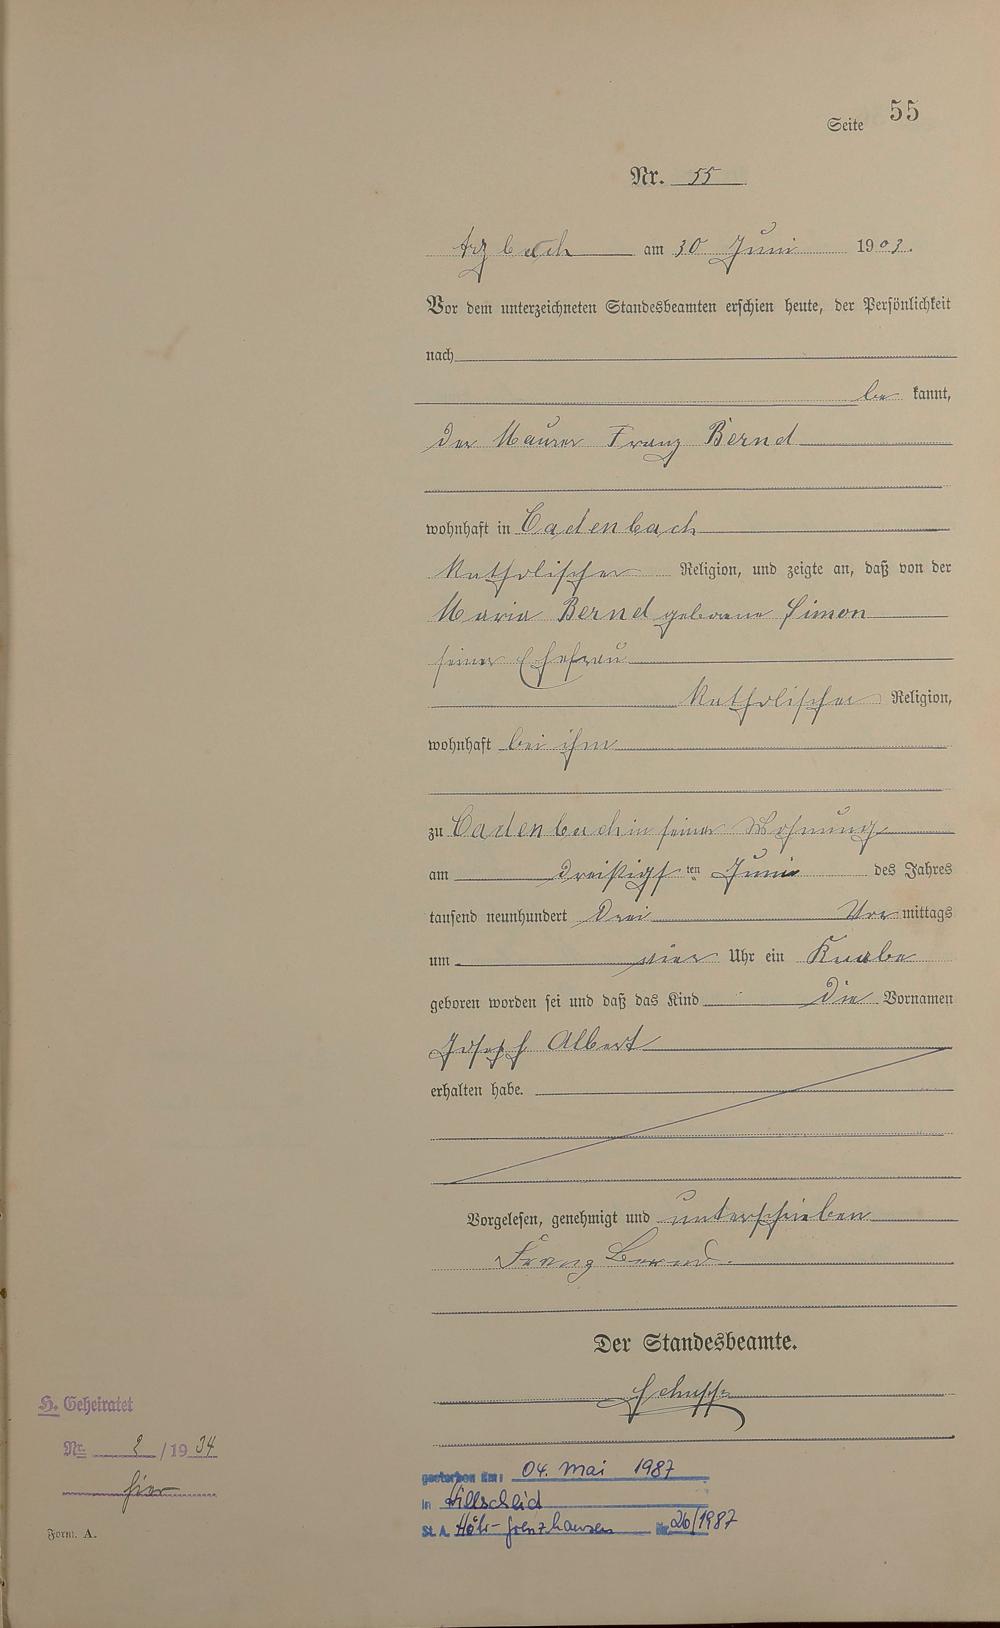 Seite 55
Nr. 55
Arzbach am 30 Juni 1903.
Vor dem unterzeichneten Standesbeamten erschien heute, der Persönlichkeit
nach
be kannt,
der Maurer Franz Bernd
wohnhaft in Cadenbach
katholischer Religion, und zeigte an, daß von der
Maria Bernd geborene Simon
seiner Ehefrau
katholischer Religion,
wohnhaft bei ihm
zu Cadenbach in seiner Wohnung
am dreißigsten Juni des Jahres
tausend neunhundert drei Vor mittags
um vier Uhr ein Knabe
geboren worden sei und daß das Kind die Vornamen
Joseph Albert
erhalten habe.
Vorgelesen, genehmigt und unterschrieben
Franz Bernd.
Der Standesbeamte.
Schupp
H. Geheiratet
Nr. 2 /1934
hier
Form. A.
gestorben am: 04. Mai 1987
in Hillscheid
St. A. Höhr-Grenzhausen Nr. 26/1987